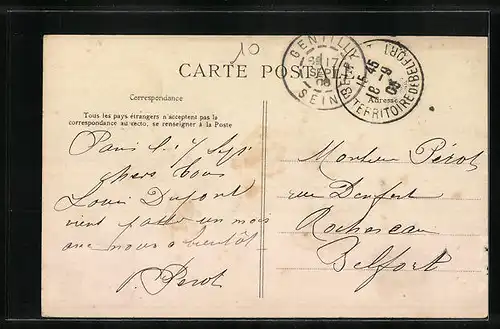 10
CARTE POSTALE
GENTILLY
17
SEPT
SEINE
15-45
18-9
TERRITOIRE DE BELFORT
Correspondance
Adresse
Tous les pays étrangers n'acceptent pas la
correspondance au recto, se renseigner à la Poste
Paris le 17 Sept
chers tous
Louis Dupont
vient passer un mois
avec nous a bientôt
P. Perot
Monsieur Pérot
rue Denfert
Rochereau
Belfort